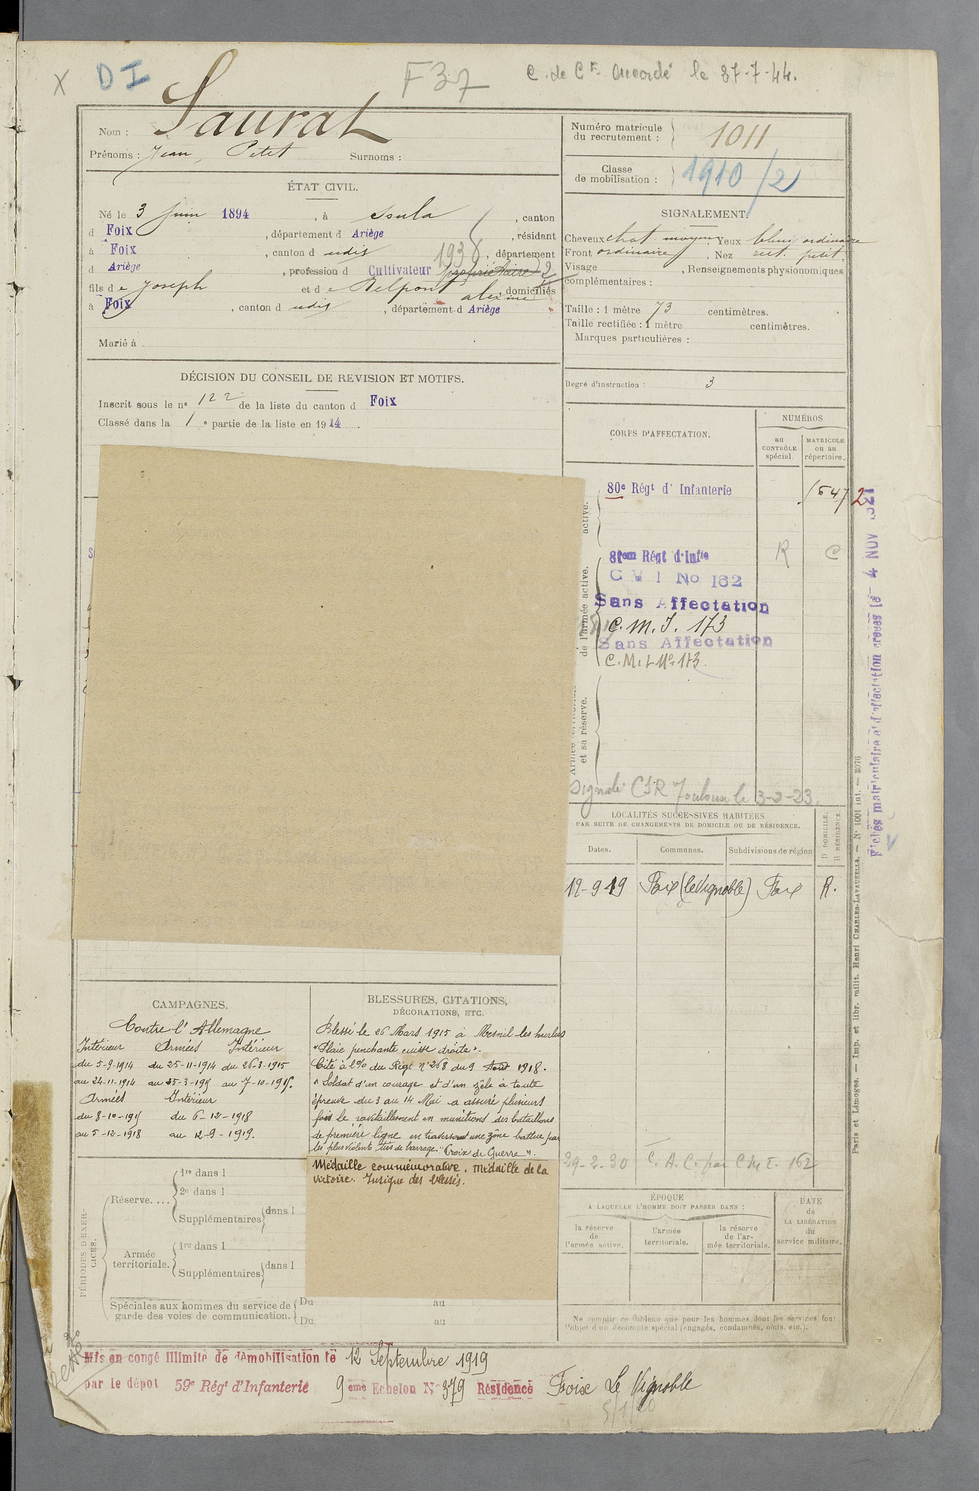 X DI F37 C. de Ct. Accordé le 37-7-44.
Nom : Saurat
Prénoms : Jean, Petit Surnoms :
Numéro matricule du recrutement : 1011
Classe de mobilisation : 1910/2
ÉTAT CIVIL.
Né le 3 juin 1894, à Soula, canton
d Foix, département d Ariège, résidant
à Foix, canton d udis 1938, département
d Ariège, profession d Cultivateur propriétaire
fils de Joseph et de Delpont domiciliés
à Foix, canton d udis, département d Ariège
Marié à
SIGNALEMENT.
Cheveux chat moyen Yeux bleu ordinaire
Front ordinaire, Nez rect. petit.
Visage, Renseignements physionomiques
complémentaires :
Taille : 1 mètre 73 centimètres.
Taille rectifiée : 1 mètre centimètres.
Marques particulières :
Degré d'instruction : 3
DÉCISION DU CONSEIL DE REVISION ET MOTIFS.
Inscrit sous le no 122 de la liste du canton d Foix
Classé dans la 1e partie de la liste en 1914.
CORPS D'AFFECTATION.
NUMÉROS
au CONTRÔLE spécial.
MATRICULE ou au répertoire.
active.
80e Régt d' Infanterie
de l'armée active.
81em Régt d'Infie R C
C M I No 162
Sans Affectation
C. M. I. 173
Sans Affectation
C. M. I No 173.
et sa réserve.
Signalé CSR Toulouse le 3-2-23.
Fiches matriculaire et d'affectation créées le 4 NOV
LOCALITÉS SUCCESSIVES HABITÉES
PAR SUITE DE CHANGEMENTS DE DOMICILE OU DE RÉSIDENCE.
Dates. Communes. Subdivisions de région D DOMICILE. R RÉSIDENCE
19-9-19 Foix (le Vignoble) Foix R.
29-2-30 C. A. C. par C M I. 162
Paris et Limoges. — Imp. et libr. milit. Henri CHARLES-LAVAUZELLE. — No 1001 int. — 2076
CAMPAGNES.
Contre l'Allemagne
Intérieur Armées Intérieur
du 5-9-1914 du 25-11-1914 du 26-3-1915
au 24-11-1914 au 25-3-1915 au 7-10-1915.
Armées Intérieur
du 8-10-1915 du 6-12-1918
au 5-12-1918 au 12-9-1919.
BLESSURES, CITATIONS,
DÉCORATIONS, ETC.
Blessé le 26 Mars 1915 à Mesnil les hurlus
"Plaie penchante cuisse droite".
Cité à l'o/o du Régt no 268 du 9 Août 1918.
"Soldat d'un courage et d'un zèle à toute
épreuve du 3 au 14 Mai a assuré plusieurs
fois le ravitaillement en munitions des bataillons
de première ligne en traversant une zone battue par
les plus violents tirs de barrage." "Croix de Guerre".
Médaille commémorative. Médaille de la
victoire. Insigne des blessés.
PÉRIODES D'EXERCICES.
Réserve.... 1re dans l
2e dans l
Supplémentaires dans l
Armée territoriale. 1re dans l
Supplémentaires dans l
Spéciales aux hommes du service de garde des voies de communication. Du au
Du au
ÉPOQUE
A LAQUELLE L'HOMME DOIT PASSER DANS :
la réserve de l'armée active.
l'armée territoriale.
la réserve de l'armée territoriale.
DATE de LA LIBÉRATION du service militaire.
Ne remplir ce tableau que pour les hommes dont les services font
l'objet d'un décompte spécial (engagés, condamnés, omis, etc.).
Mis en congé illimité de démobilisation le 12 Septembre 1919
par le dépôt 59e Régt d'Infanterie 9eme Echelon No 379 Résidence Foix Le Vignoble